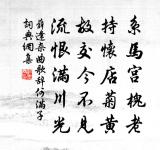 系馬宮槐老
持懷店菊黃
故交今不見
流恨滿川光
薛逢杂曲歌辞何滿子
詞典網集